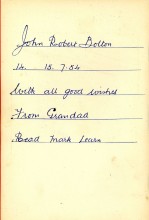 John Robert Bolton
14. 15.7.54
With all good wishes
From Grandad
Read Mark Learn